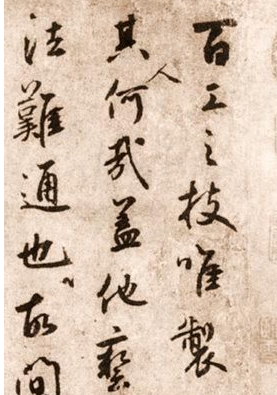 百工之技唯製
其人何哉蓋他藝
法難通也故間